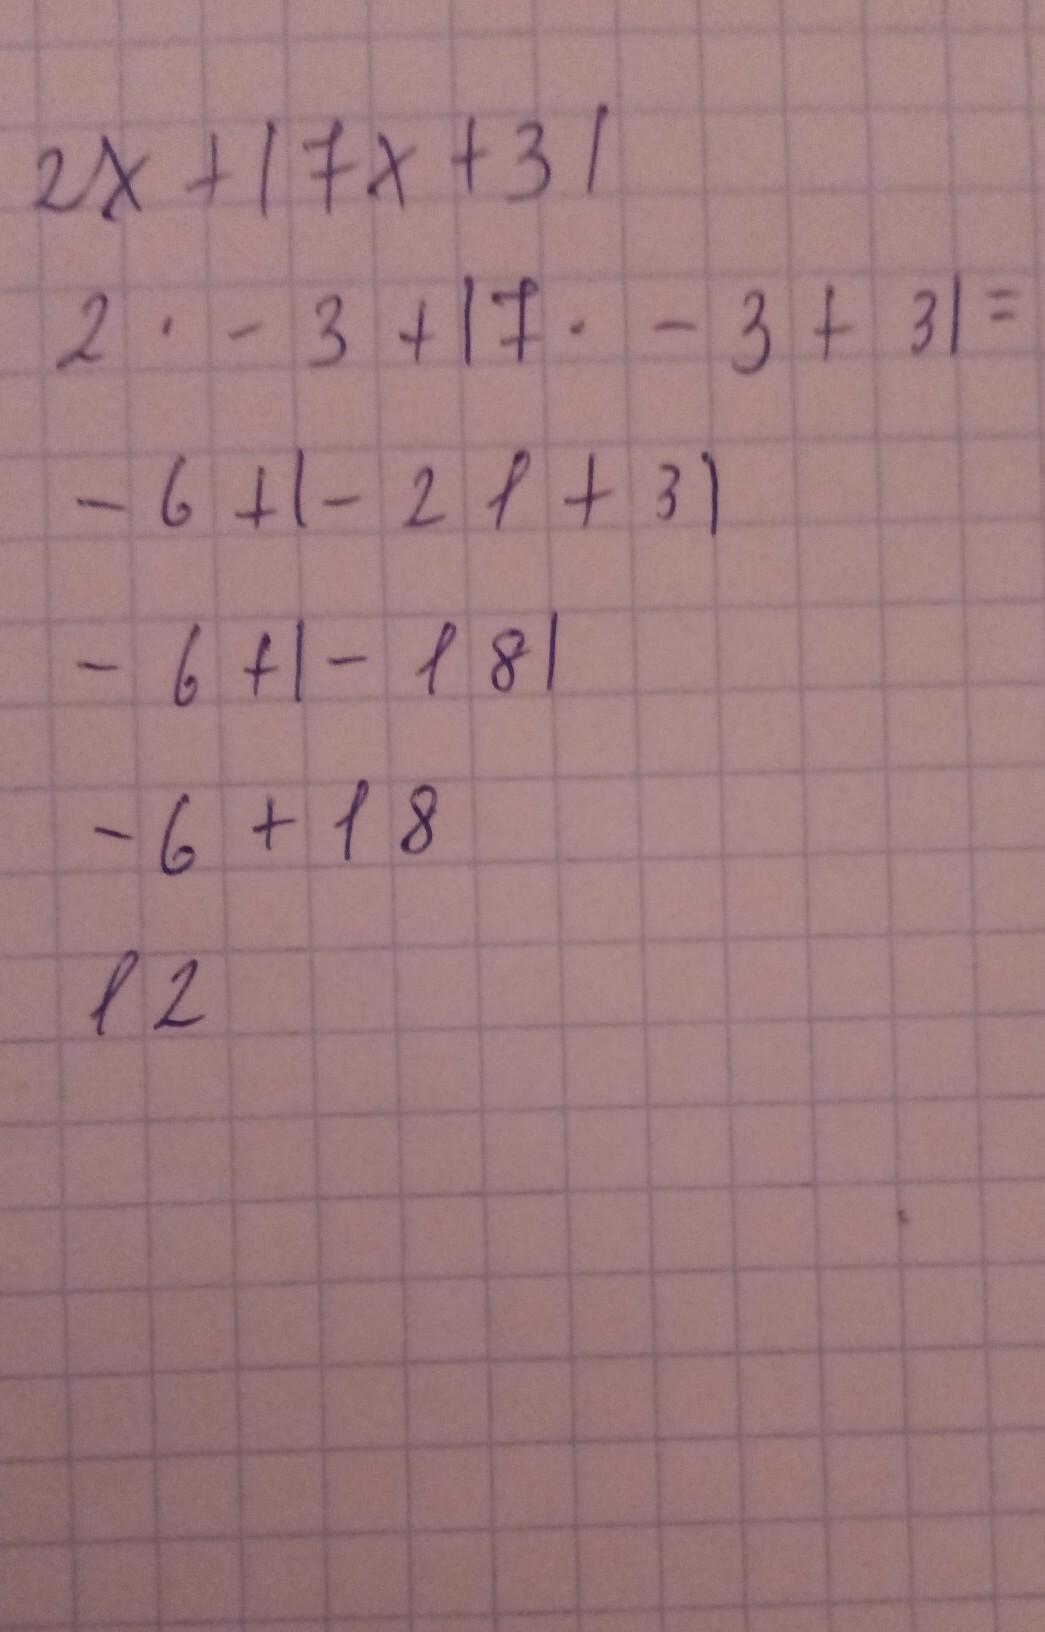 2x + |7x + 3|
2 · - 3 + |7 · - 3 + 3| =
- 6 + |- 21 + 3|
- 6 + |- 18|
- 6 + 18
12